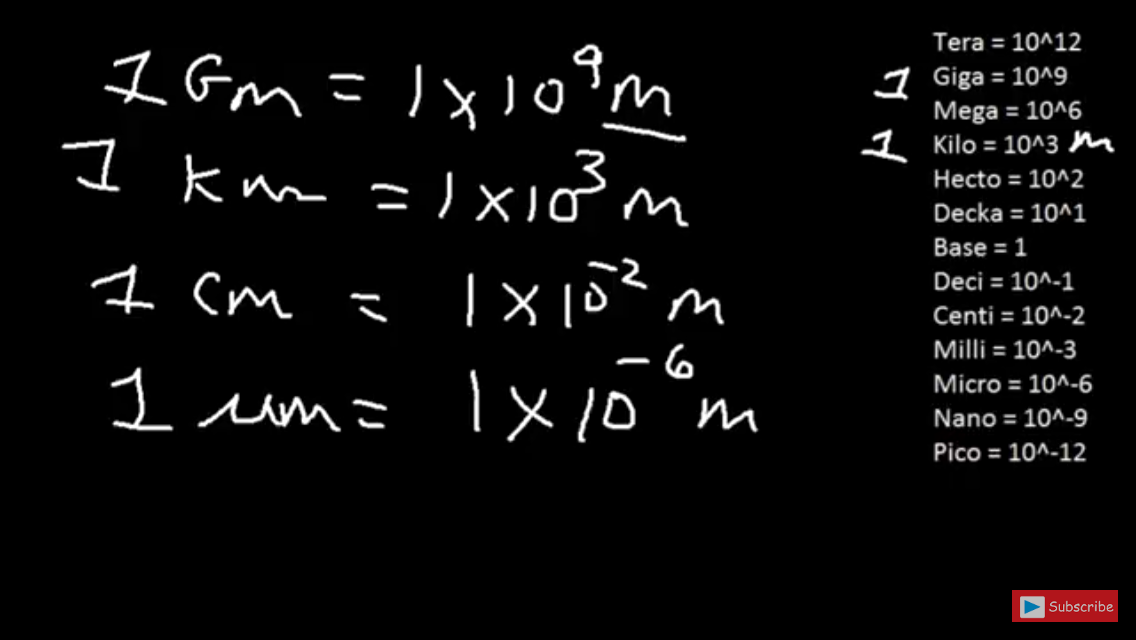 1 Gm = 1 x 10^9 m
1 km = 1 x 10^3 m
1 cm = 1 x 10^-2 m
1 μm = 1 x 10^-6 m
Tera = 10^12
1 Giga = 10^9
Mega = 10^6
1 Kilo = 10^3 m
Hecto = 10^2
Decka = 10^1
Base = 1
Deci = 10^-1
Centi = 10^-2
Milli = 10^-3
Micro = 10^-6
Nano = 10^-9
Pico = 10^-12
Subscribe